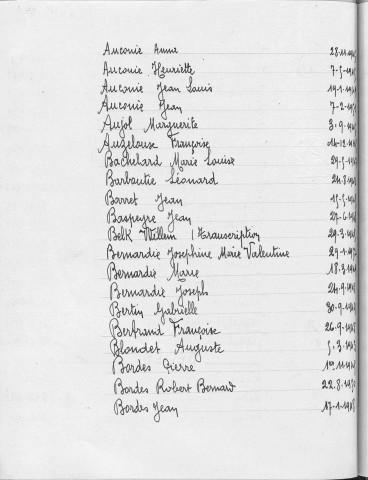 Auconie Anna 28.11.19
Auconie Henriette 7-5-19
Auconie Jean Louis 19-1-19
Auconie Jean 7-2-19
Aujol Marguerite 3-9-19
Auzelouse Françoise 14-12-19
Bachelard Marie Louise 29-5-19
Barbautie Léonard 24-8-19
Barret Jean 15-5-19
Baspeyre Jean 27-6-19
Belk Willem (Transcription) 29-3-19
Bernardie Joséphine Marie Valentine 29-1-19
Bernardie Marie 18-3-19
Bernardie Joseph 24-9-19
Bertin Gabrielle 30-9-19
Bertrand Françoise 26-9-19
Blondet Auguste 5-3-19
Bordes Pierre 11-19
Bordes Robert Bernard 22.8.19
Bordes Jean 17-1-19